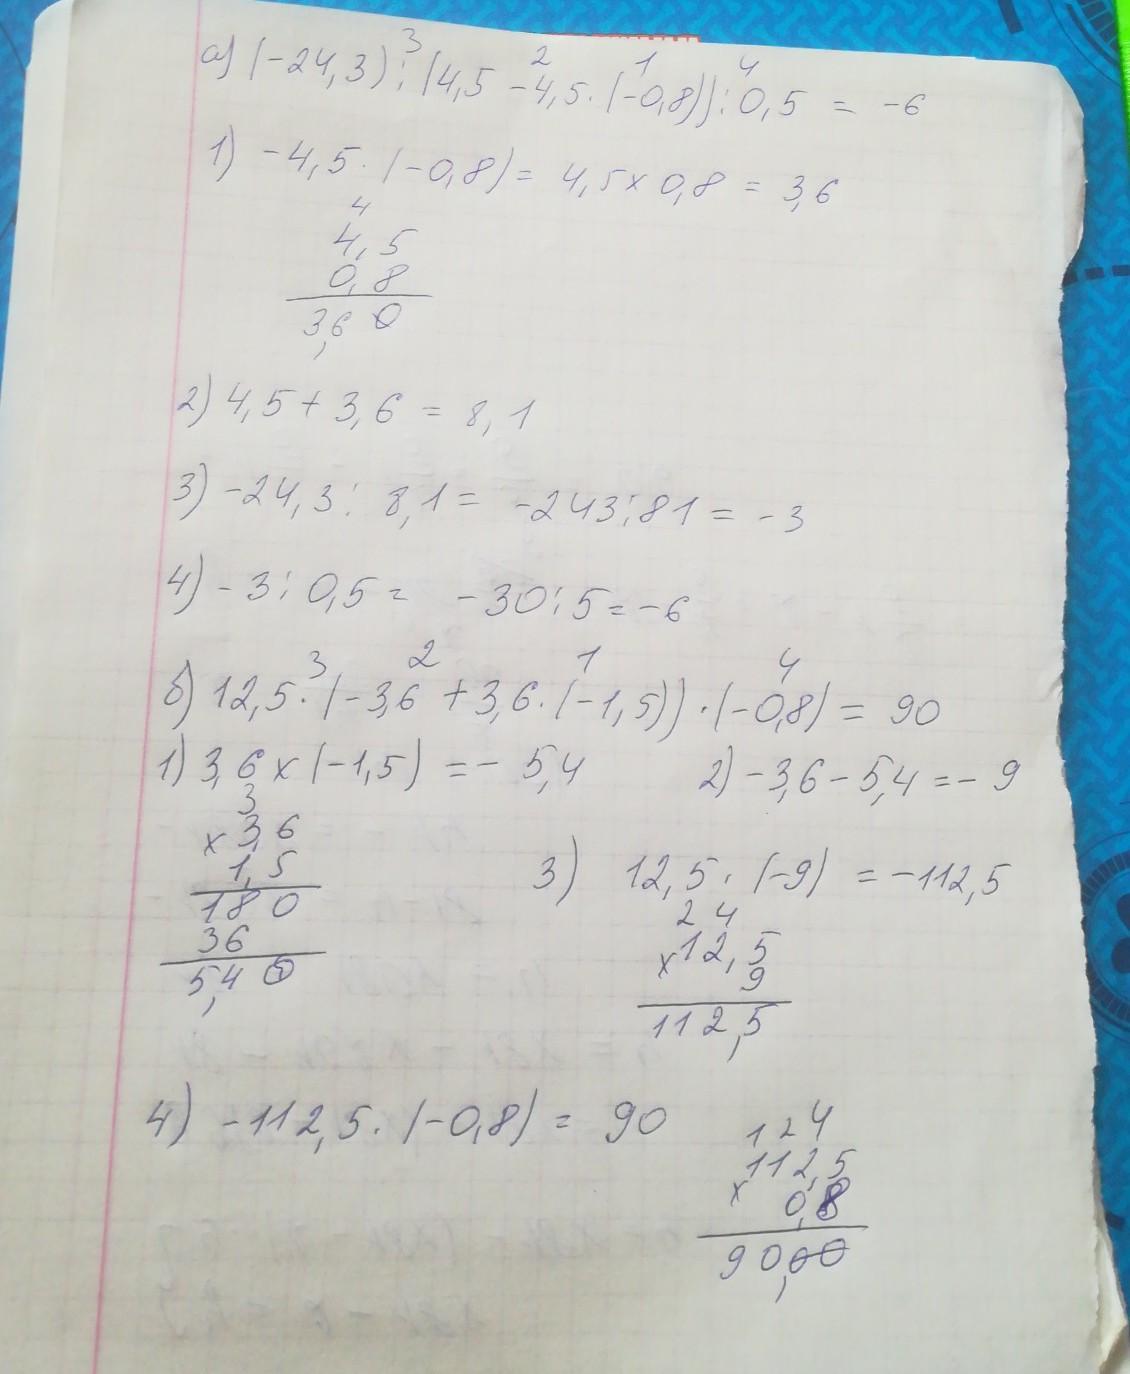 3 2 1 4
а) (-24,3) : (4,5 -4,5 · (-0,8)) : 0,5 = -6
1) -4,5 · (-0,8) = 4,5 x 0,8 = 3,6
4
4,5
0,8
3,6 0
2) 4,5 + 3,6 = 8,1
3) -24,3 : 8,1 = -243 : 81 = -3
4) -3 : 0,5 = -30 : 5 = -6
3 2 1 4
б) 12,5 · (-3,6 + 3,6 · (-1,5)) · (-0,8) = 90
1) 3,6 x (-1,5) = - 5,4
3
x 3,6
1,5
180
36
5,4 0
2) -3,6 - 5,4 = - 9
3) 12,5 · (-9) = -112,5
2 4
x 12,5
9
112,5
4) -112,5 · (-0,8) = 90
1 2 4
x 112,5
0,8
90,00